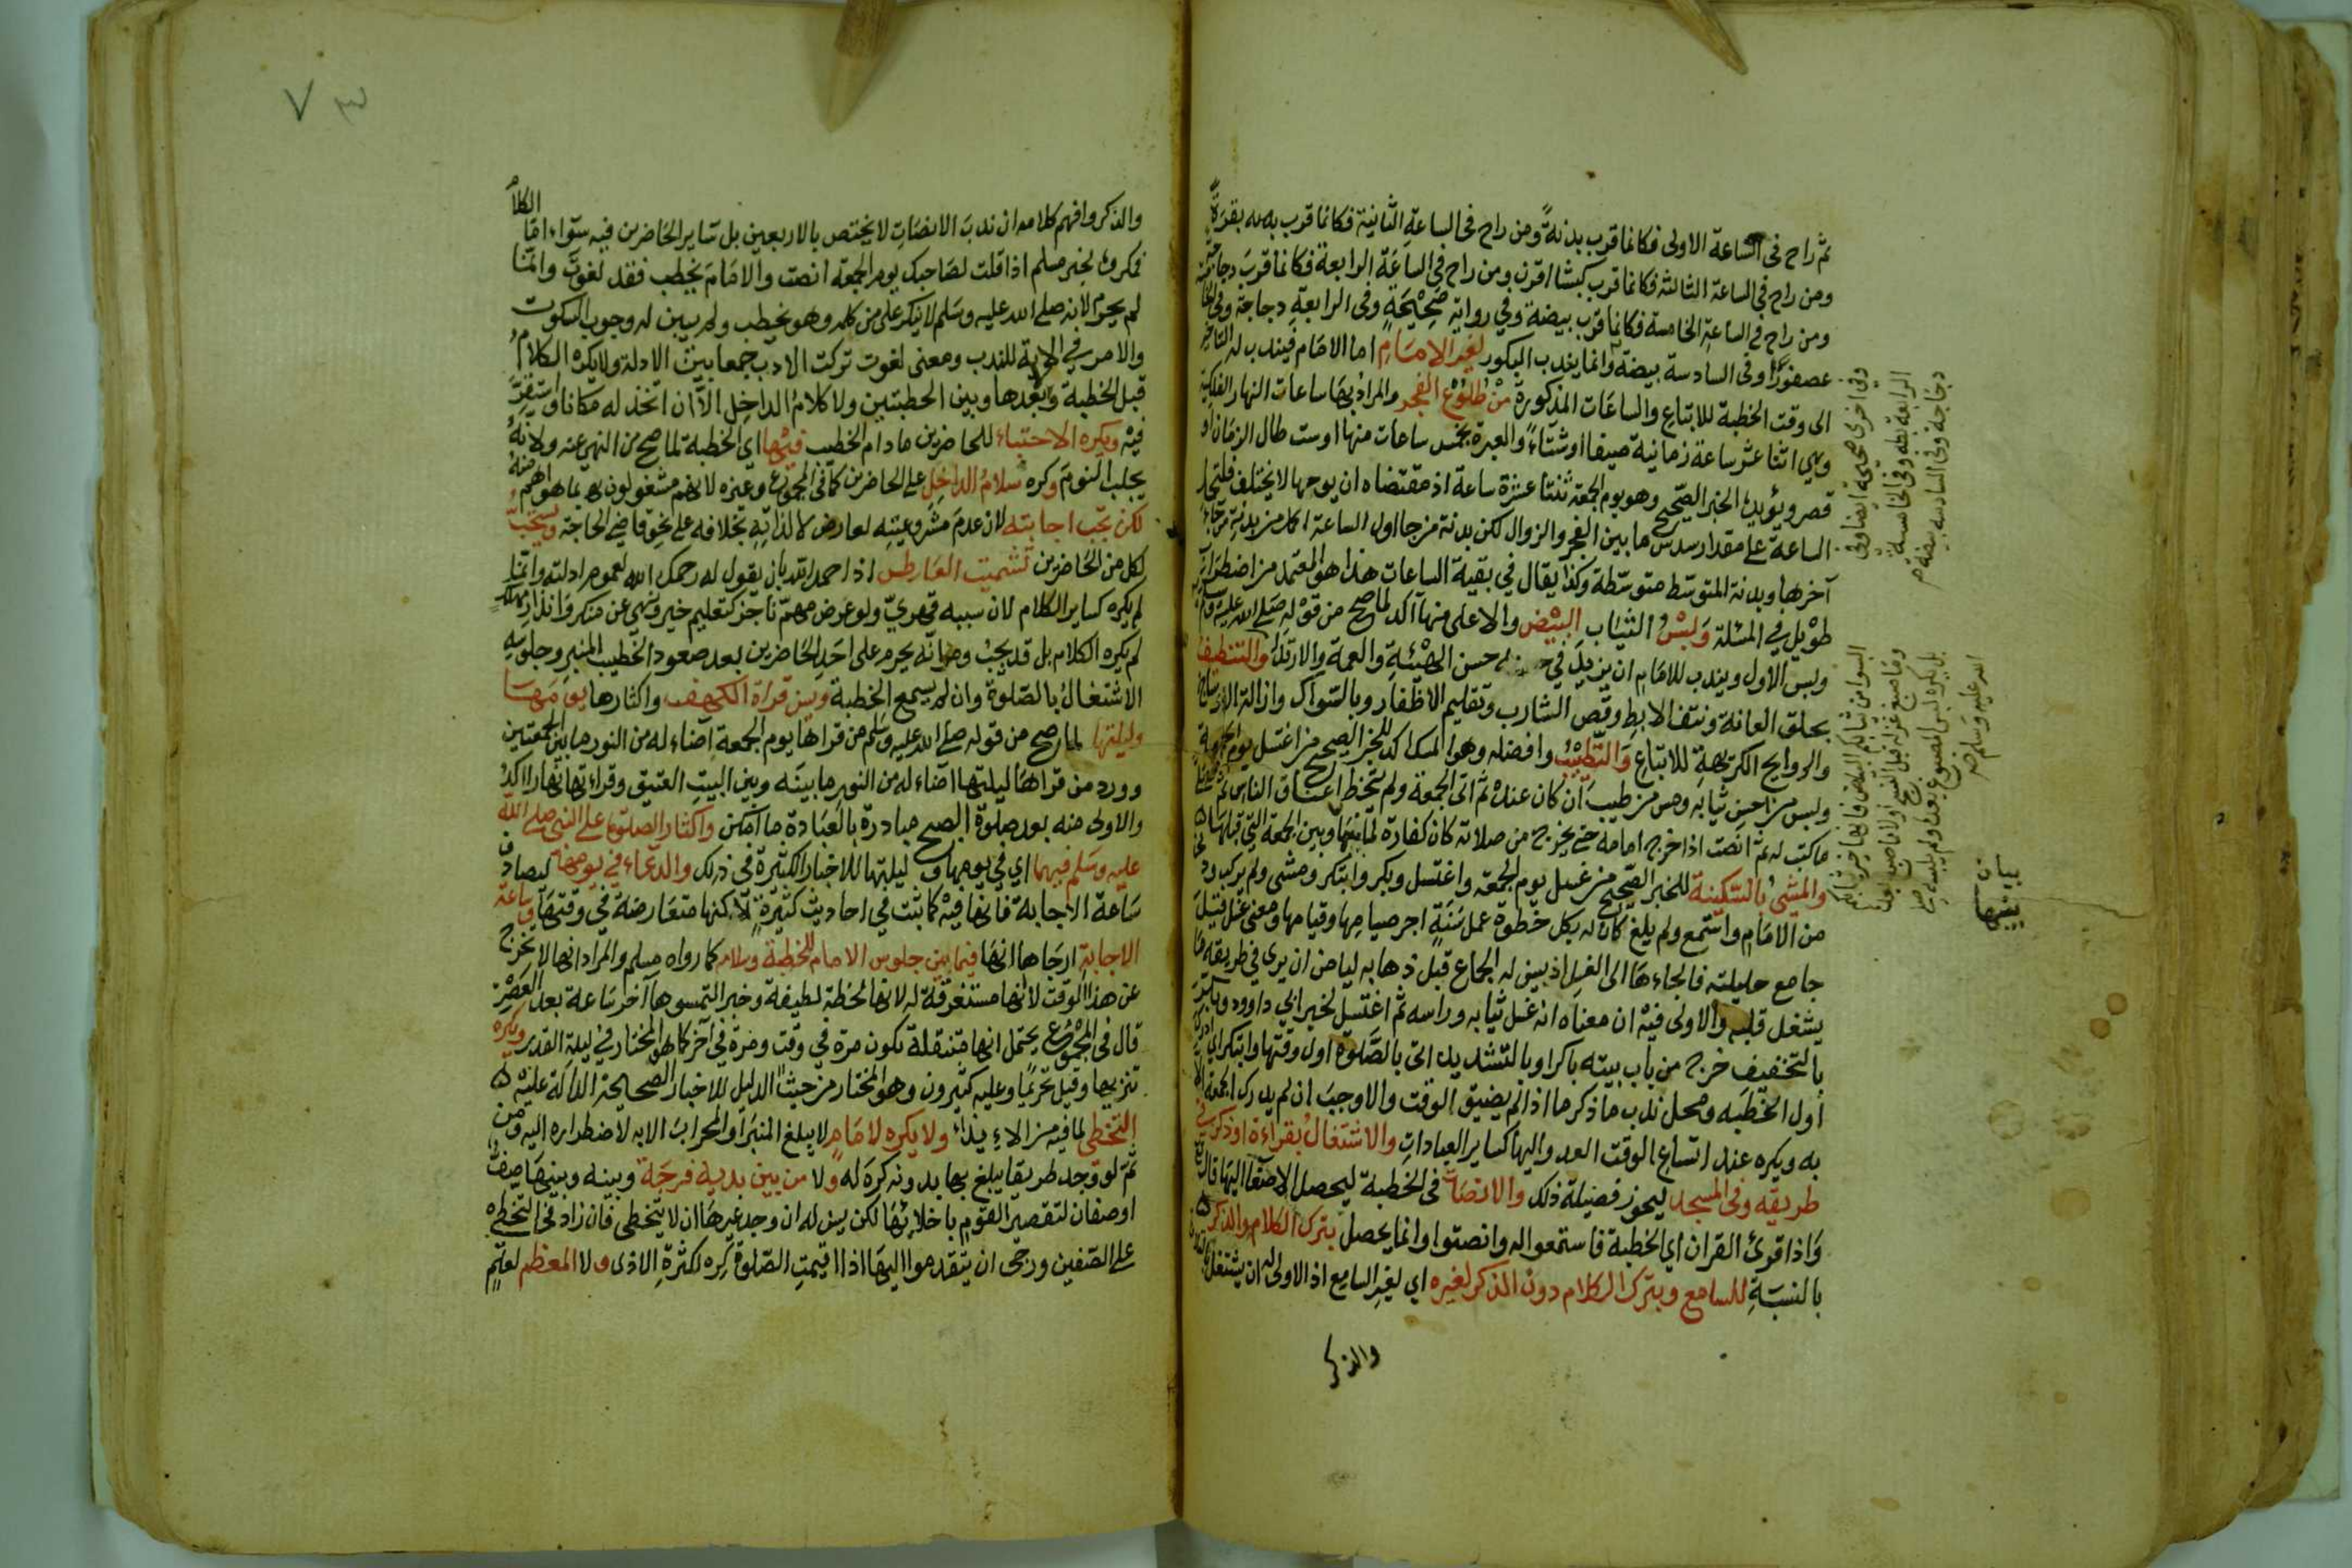 ثم راح فى الساعة الاولى فكانما قرب بدنةً ومن راح فى الساعةِ الثانية فكانما قرب بقرةً
ومن راح فى الساعة الثالثه فكانما قرب كبشا اقرن ومن راح فى الساعَة الرابعة فكانما قربَ دجاجة
ومن راح فى الساعةِ الخامسة فكانما قرّب بيضة وفي رواية صَحِيْحَةٍ وفى الرابعةِ دجاجة وفى الخامسة
عصفورًا وفى السادسة بيضة وانما يندب البكور لغير الامَامِ اما الامَام فيندب له التاخير
الى وقت الخطبة للاتباع والساعَات المذكورة مْن طُلُوْع الفجر والمرادُ بهَا ساعات النهار الفلكية
وهي اثنا عشر ساعة زمانية صيفا اوشتَاءً والعبرة بخمس ساعات منها اوست طال الزمَان او
قصر ويؤيده الخبر الصّحيح وهو يوم الجمعة ثنتا عشرة ساعة اذ مقتضاه ان يومها لا يختلف فلتحمل
الساعة على مقدار سدس ما بين الفجر والزوال لكن بدنة من جا اول الساعة اكمل من بدنة من جاء
آخرها وبدنة المتوسّط متوسّطة وكذا يقال في بقية الساعات هذا هو المعتمد من اضطراب
طوْيل في المسئلة وَلبْسُ الثيَاب البيْض والاعلى منها آكد لما صح من قوْله صَلى الله عليه وسلم
ولبس الاول ويندب للامَام ان يزيدَ في حسن الهيْئةِ والعمة والارتدَاء والتنظيفُ
بحلق العانة ونتف الابط وقص الشارب وتقليم الاظفار وبالسّواك وازالة الاوساخ
والروايح الكريهةِ للاتباع وَالتّطيْبُ وافضله وهو المسك اكد للخبر الصحيح من اغتسل يوم الجمعة
ولبس من احسن ثيابه ومس من طيب اَن كان عنده ثم اتى الجمعة ولم يتخط اعناق الناس ثم صلى
ما كتب له ثم انصت اذا خرج امامه حتى يخرج من صلاته كان كفارة لما بينها وبين الجمعة التي قبلها
والمشىُ بالسّكينة للخبر الصّحيح من غسل يوم الجمعة واغتسل وبكر وابتكر ومشى ولم يركب ودنا
من الامَام واستمع ولم يلغ كان له بكل خطوة عمل سَنَةٍ اجر صيامِها وقيامها ومعنى غسل قيْلَ
جامع حليلته فالجاءهَا الى الغسل اذ يسن له الجماع قبل ذهابه ليامن ان يرى في طريقه ما
يشغل قلبه والاولى فيْه ان معناه انه غسل ثيابه وراسه ثم اغتسل لخبر ابي داوود وبكر
بالتخفيف خرج من باب بيته باكرا وبالتشديد اتى بالصَّلوة اول وقتها وابتكر اي ادرك
أول الخطبَه ومحل ندب ما ذكر ما اذا لم يضيق الوقت والاوجبَ ان لم يدرك الجمعة الا
به ويكره عند اتساع الوقت العدو اليها كساير العباداتِ والاشتغالُ بقراءة او ذكر في
طريقه وفى المسجد ليحوز فضيلة ذلك والانصاتُ فى الخطبة ليحصل الاصغا اليها قال تع
وَاذا قرئ القران اي الخطبة فاستمعوا له وانصتوا وانما يحصل بترك الكلام والذكر
بالنسبَةِ للسامع وبترك الكلام دون الذكر لغيره اي لغير السامع اذ الاولى له ان يشتغل
والذكر
وفى اخرى صحيحة ايضا وفى
الرابعة بطه وفى الخامسة
دجاجة وفى السادسه بيضة
البسوا من ثيابكم البيض فانها خير ثيابكم
وما صبغ غزله قبل النسج اولى مما صبغ بعده
بل يكره لبس المصبوغ بعده ولم يلبسه صلى
الله عليه وسلم
والذكر وافهم كلامه ان ندبَ الانصَاتِ لا يختص بالاربعين بل سَاير الحَاضرين فيه سوَاء اما الكلام
فمكروه لخبر مسلم اذا قلت لصَاحبك يوم الجمعة انصت والامَامَ يخطب فقد لغوتَ وانما
لم يحرم لانه صلى الله عليه وسَلم لم ينكر على من كلمه وهو يخطب ولم يبين له وجوب السكوت
والامر في الاية للندب ومعنى لغوت تركت الادب جمعا بين الادلة ولا يكره الكلامُ
قبل الخطبة وبَعْدها وبين الخطبتين ولا كلامُ الداخِل الاّ ان اتخذ له مكانا واستقرَّ
فيْه ويكره الاحتباء للحاضرين مادام الخطيب فيهَا اي الخطبة لما صح من النهي عنه ولانه
يجلب النوْمَ وكره سلامُ الداخِل على الحاضرين كما فى المجموْع وغيره لانهم مشغولون بما هو اهم منه
لكن تجب اجابته لان عدمَ مشروعيّتِه لعارض لا لذاتِهِ بخلافه على نحوِ قاضِي الحاجة ويستحَبّ
لكل من الحَاضرين تشميت العَاطِس اذا حمد الله بان يقول له رحمك الله لعموم ادلته وانما
لم يكره كساير الكلام لان سببه قهريّ ولو عرَض مهمّ ناجز كتعليم خير ونهي عن منكر وَانذار مهلكٍ
لم يكره الكلام بل قد يجبُ وهو انه يحرم على احَدِ الحَاضرين بعد صعود الخطيب المنبر وجلوسِهِ
الاشتغالُ بالصّلوة وان لم يسمع الخطبة ويسن قراة الكهف واكثارها يومَهَا
وليلتها لما صح من قوله صلى الله عليه وسَلم من قراها يوم الجمعة اَضاء له من النور ما بين الجمعتين
وورد من قراهَا ليلتها اَضاء له من النورِ ما بينَه وبين البيتِ العتيق وقراءتها نهارا اكدُ
والاولى منه بعد صلوة الصبح مبادرة بالعبَادة ما امكن واكثار الصلوة على النبي صلى الله
عليه وسَلم فيهما اي في يومها وليلتها للاخبار الكثيرة فى ذلك والدعاء في يومها ليصادف
سَاعة الاجابة فانها فيْه كما ثبت في احاديث كثيرةٍ لكنها متعَارضة في وقتهَا وسَاعة
الاجابة ارجَاها انها فيما بين جلوس الامام للخطبة وسلامه كما رواه مسلم والمراد انها لا تخرج
عن هذا الوقت لا انها مستغرقة له لانها لحظة لطيفة وخبر التمسوها آخر سَاعة بعد العَصْر
قال فى المجموْع يحتمل انها منتقلة تكون مرة في وقت ومرة في آخر كما هو المختار في ليلةِ القدر ويكره
تنزيها وقيل تحريمًا وعليه كثيرون وهو المختار من حيث الدليل للاخبار الصحيحة الدالة عليه
التخطى لما فيه من الايذاء ولا يكره لامَامٍ لا يبلغ المنبَر او المحرابَ الا به لاضطراره اليه ومن
ثمّ لو وجد طريقا يبلغ بها بدونه كرهَ له ولا من بين يديه فرجَة وبينه وبينهَا صفٌ
او صفان لتقصير القوْم باخلائهَا لكن يسن له ان وجد غيرهَا ان لا يتخطى فان زاد فى التخطي
على الصّفين ورجى ان يتقدموا اليهَا اذا اقيمتِ الصّلوة كره لكثرةِ الاذى ولا المعظم